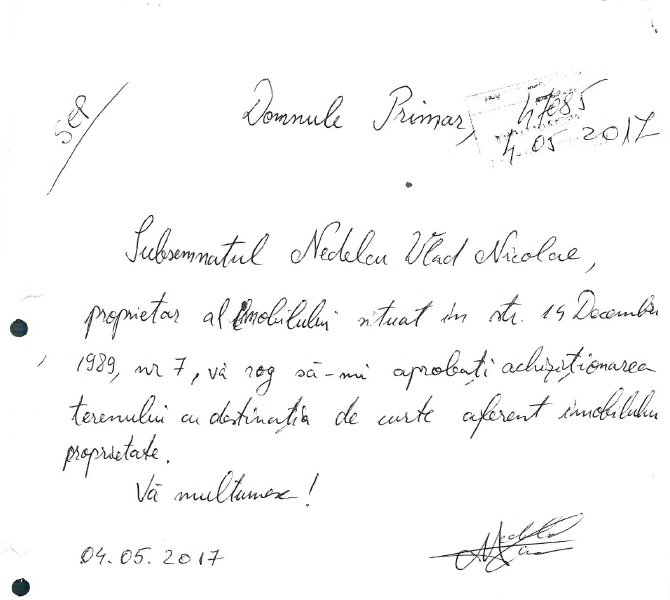 SEP
Domnule Primar,
47085
4.05 2017
Subsemnatul Nedelcu Vlad Nicolae,
proprietar al imobilului situat in str. 14 Decembrie
1989, nr 7, vă rog să-mi aprobați achiziționarea
terenului cu destinația de curte aferent imobilului
proprietate.
Vă multumesc!
04.05.2017